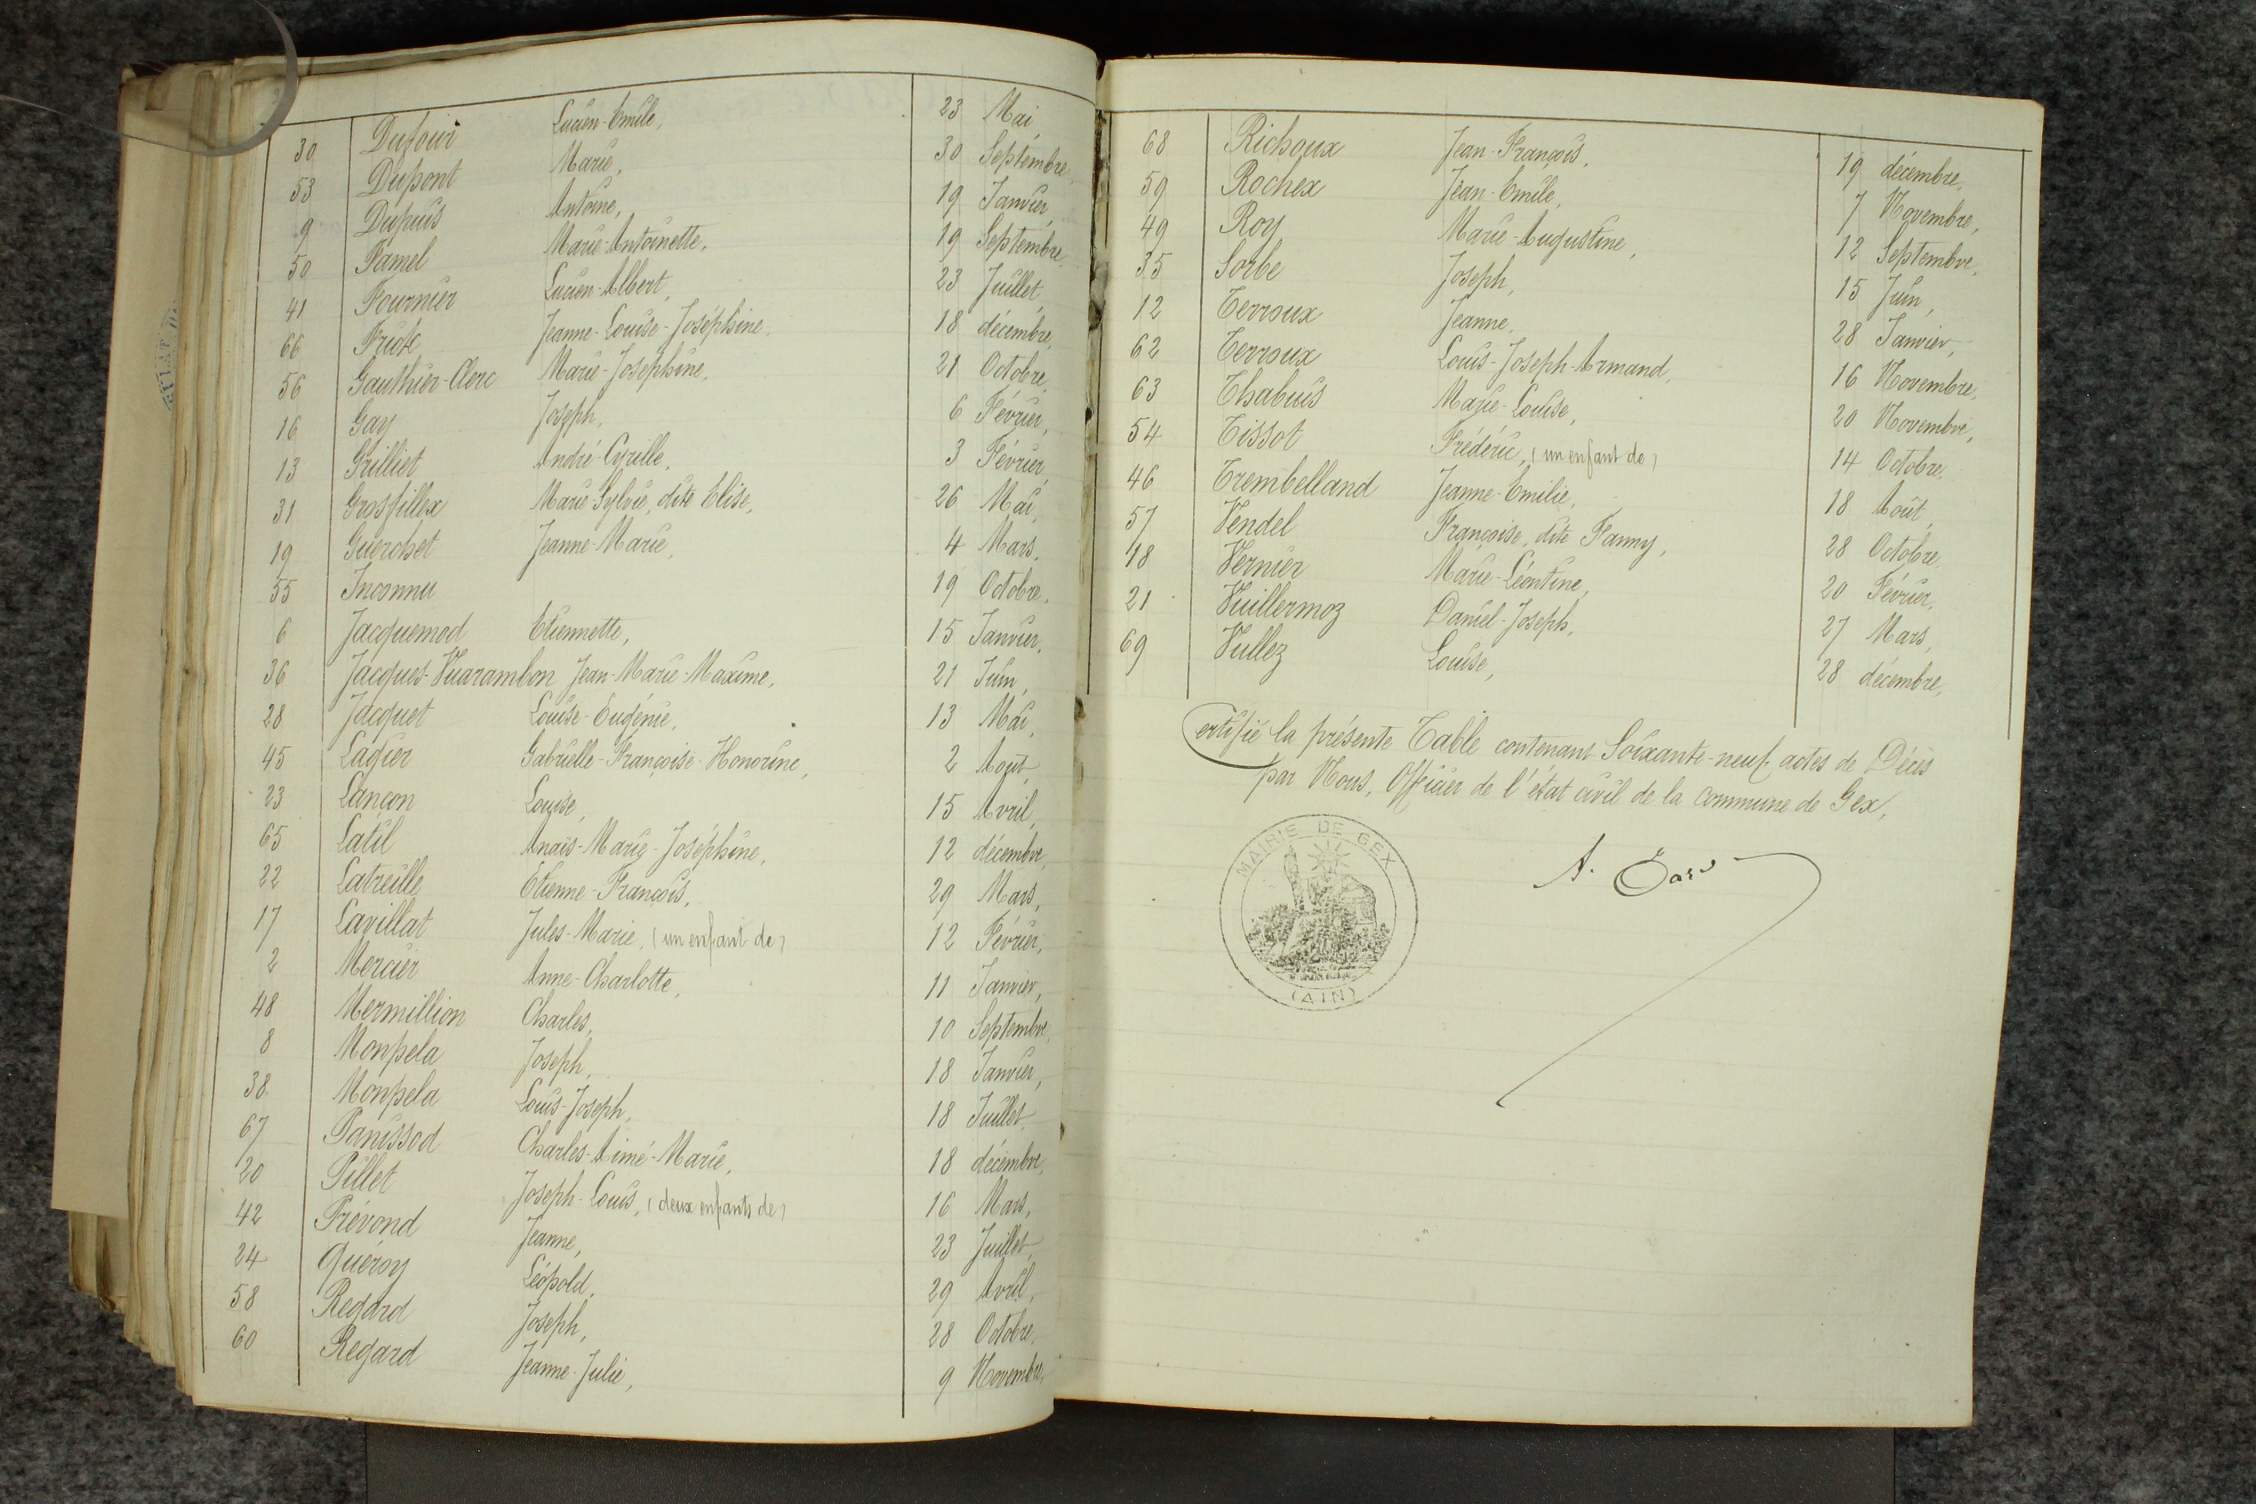 30 Dufour Lucien-Emile, 23 Mai,
53 Dupont Marie, 30 Septembre,
9 Dupuis Antoine, 19 Janvier,
50 Famel Marie-Antoinette, 19 Septembre,
41 Fournier Lucien-Albert, 23 Juillet,
66 Jeanne-Louise-Joséphine, 18 décembre,
56 Gauthier-Clerc Marie-Joséphine, 21 Octobre,
16 Gay Joseph, 6 Février,
13 Grilliet André-Cyrille, 3 Février,
31 Grosfillex Marie Sylvie, dite Elise, 26 Mai,
19 Guerchet Jeanne-Marie, 4 Mars,
55 Inconnu 19 Octobre,
6 Jacquemod Etiennette, 15 Janvier,
36 Jacques-Vuarambon Jean-Marie-Maxime, 21 Juin,
28 Jacquet Louise-Eugénie, 13 Mai,
45 Lagier Gabrielle-Françoise-Honorine, 2 Août,
23 Lançon Louise, 15 Avril,
65 Latil Anaïs-Marie-Joséphine, 12 décembre,
22 Latreille Etienne-François, 29 Mars,
17 Lavillat Jules-Marie, (un enfant de) 12 Février,
2 Mercier Anne-Charlotte, 11 Janvier,
48 Mermillion Charles, 10 Septembre,
8 Monpela Joseph, 18 Janvier,
38 Monpela Louis-Joseph, 18 Juillet,
67 Panissod Charles-Aimé-Marie, 18 décembre,
20 Pillet Joseph-Louis, (deux enfants de) 16 Mars,
42 Prévond Jeanne, 23 Juillet,
24 Quéroy Léopold, 29 Avril,
58 Regard Joseph, 28 Octobre,
60 Regard Jeanne-Julie, 9 Novembre,
68 Richoux Jean-François, 19 décembre,
59 Rochex Jean-Emile, 7 Novembre,
49 Roy Marie-Augustine, 12 Septembre,
35 Sorbe Joseph, 15 Juin,
12 Terroux Jeanne, 28 Janvier,
62 Terroux Louis-Joseph-Armand, 16 Novembre,
63 Thabuis Marie-Louise, 20 Novembre,
54 Tissot Frédéric, (un enfant de) 14 Octobre,
46 Trembelland Jeanne-Emilie, 18 Août,
57 Vendel Françoise, dite Fanny, 28 Octobre,
18 Vernier Marie-Léontine, 20 Février,
21 Vuillermoz Daniel-Joseph, 27 Mars,
69 Vullez Louise, 28 décembre,
Certifié la présente Table contenant Soixante-neuf actes de Décès
par Nous, Officier de l'état civil de la commune de Gex,
MAIRIE DE GEX
(AIN)